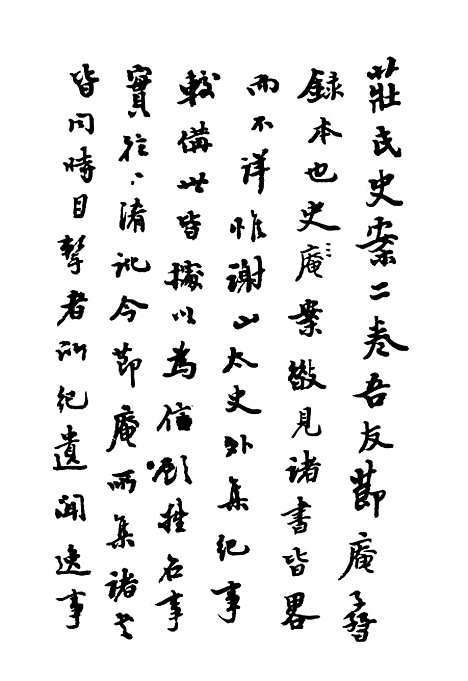 莊氏史案二卷吾友節庵
録本也史庵案散見諸書皆畧
而不詳惟謝山太史外集紀事
較備世皆據以為信顧姓名事
實往淆訛今節庵所集諸
皆同時目擊者所紀遺聞逸事